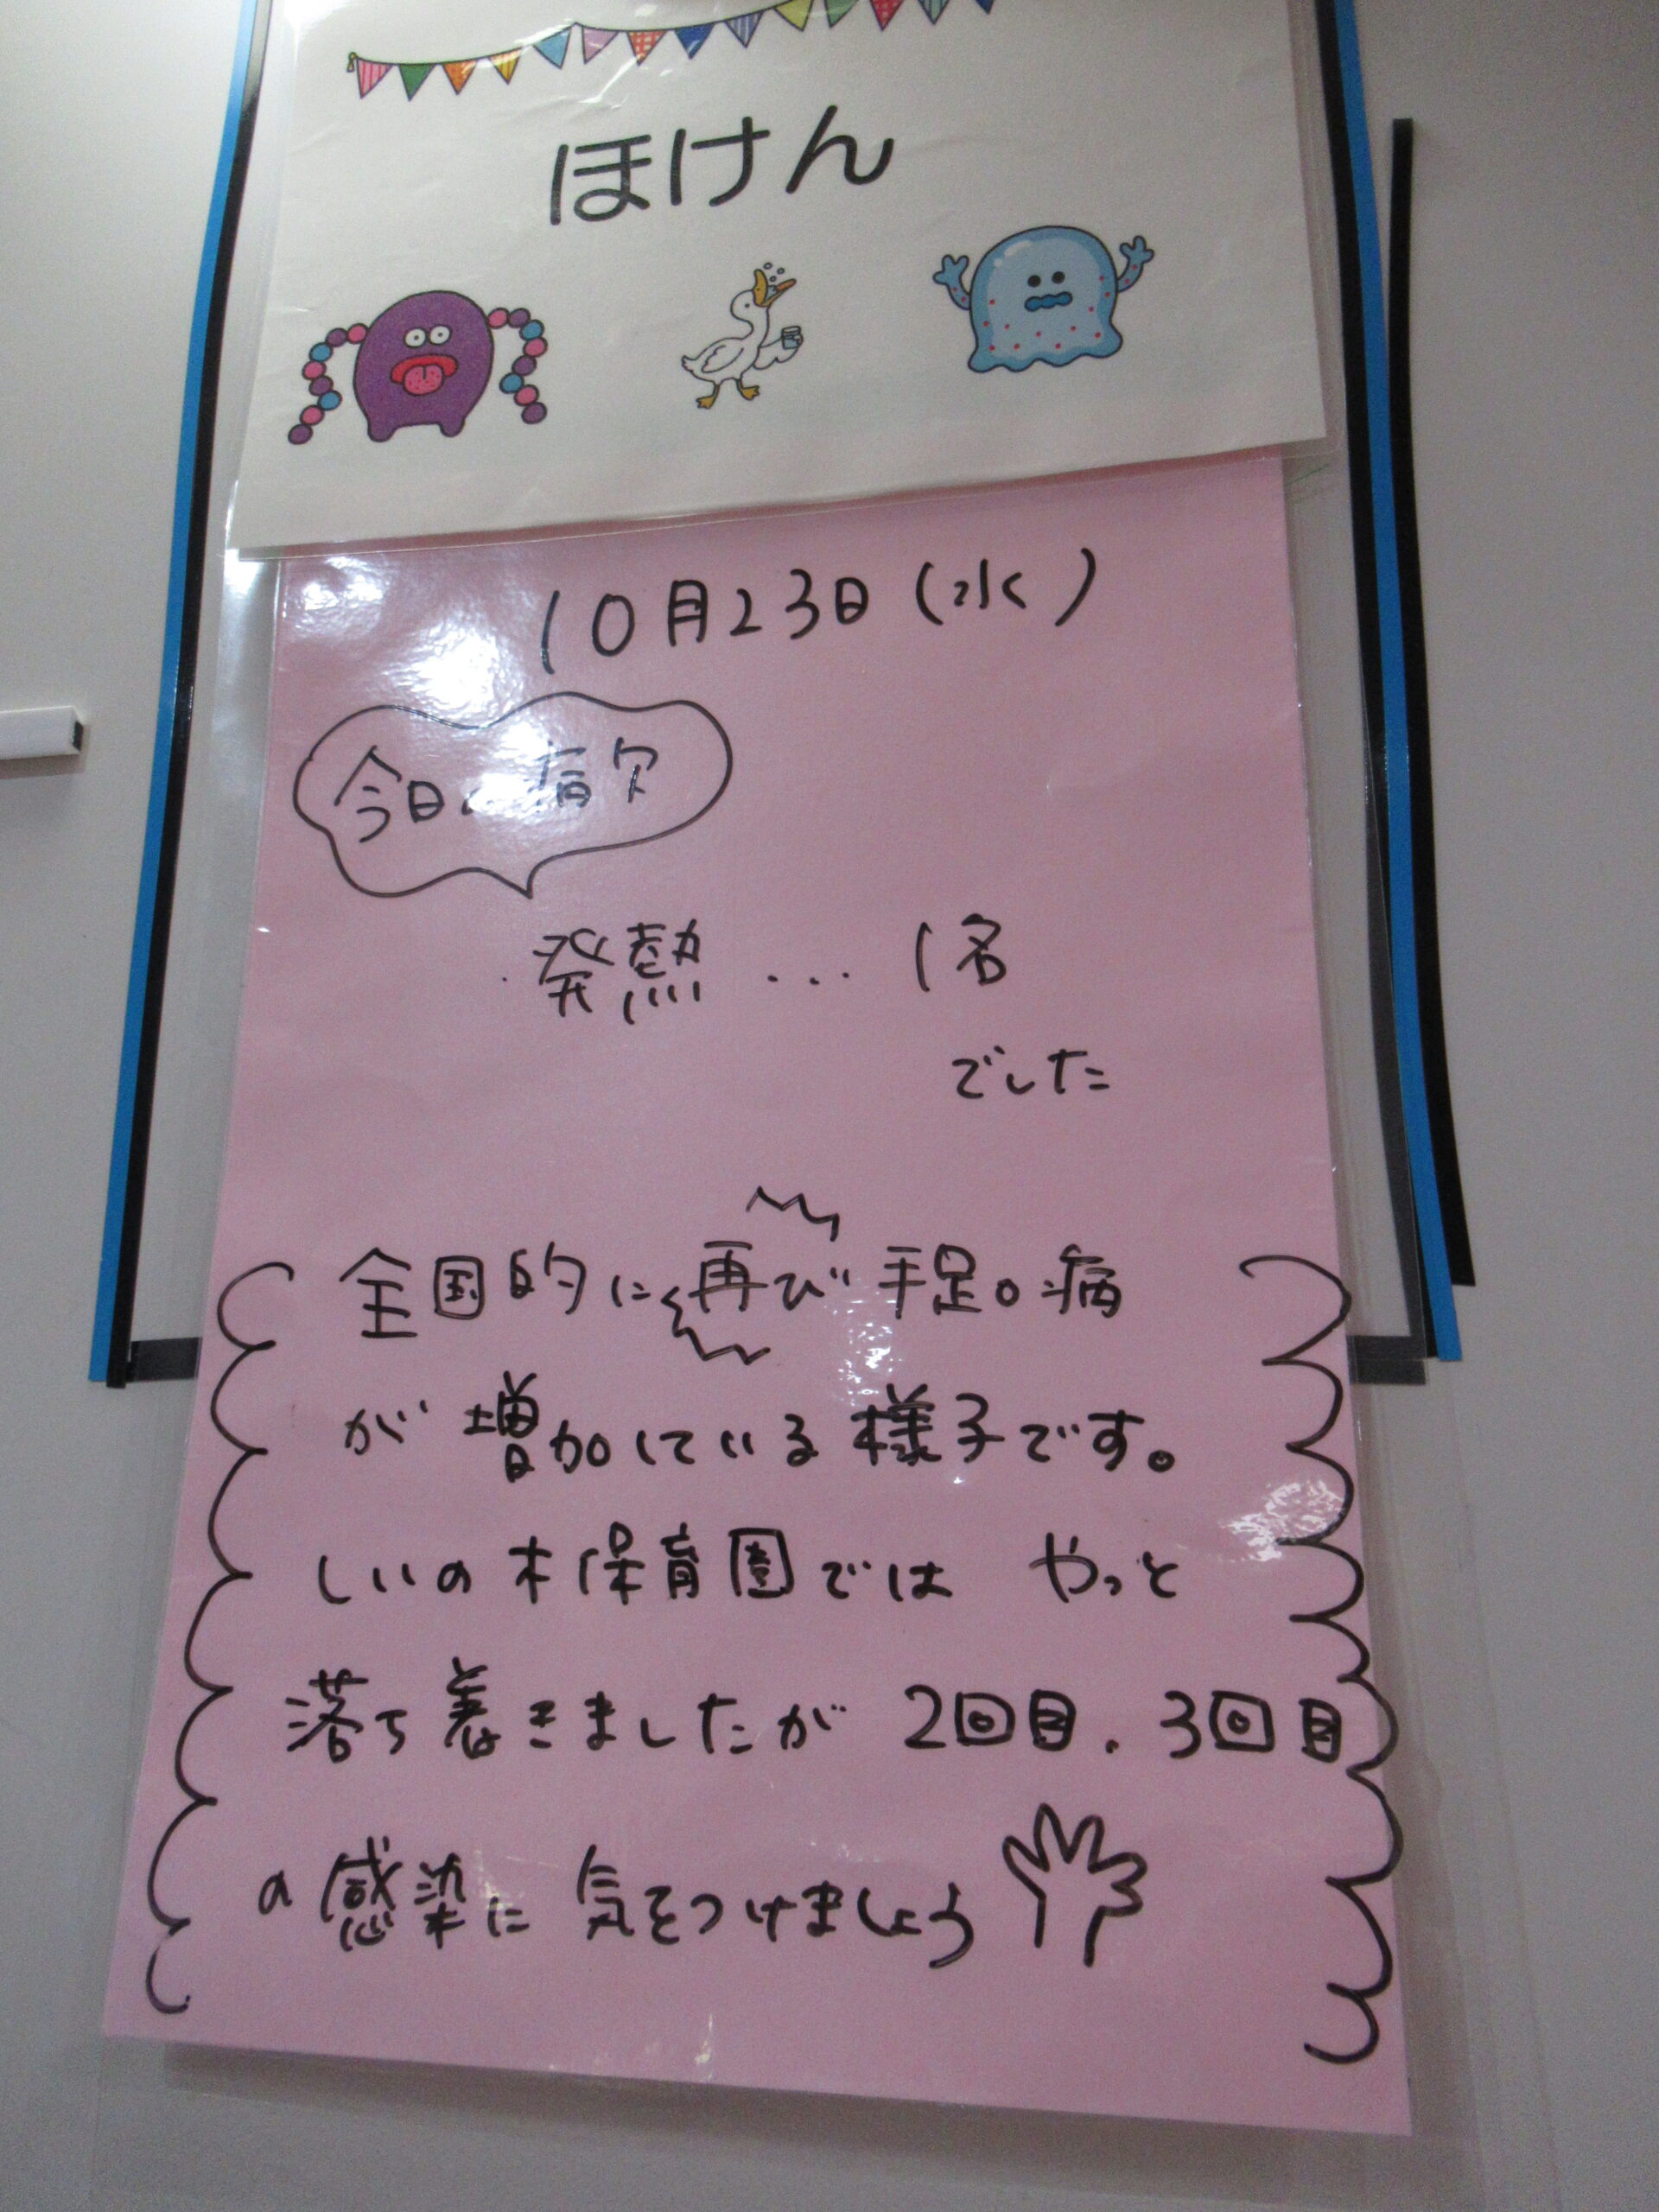 ほけん
10月23日(水)
今日の病欠
発熱 ... 1名
でした
全国的に再び手足口病
が増加している様子です。
しいの木保育園では やっと
落ち着きましたが 2回目、3回目
の感染に気をつけましょう